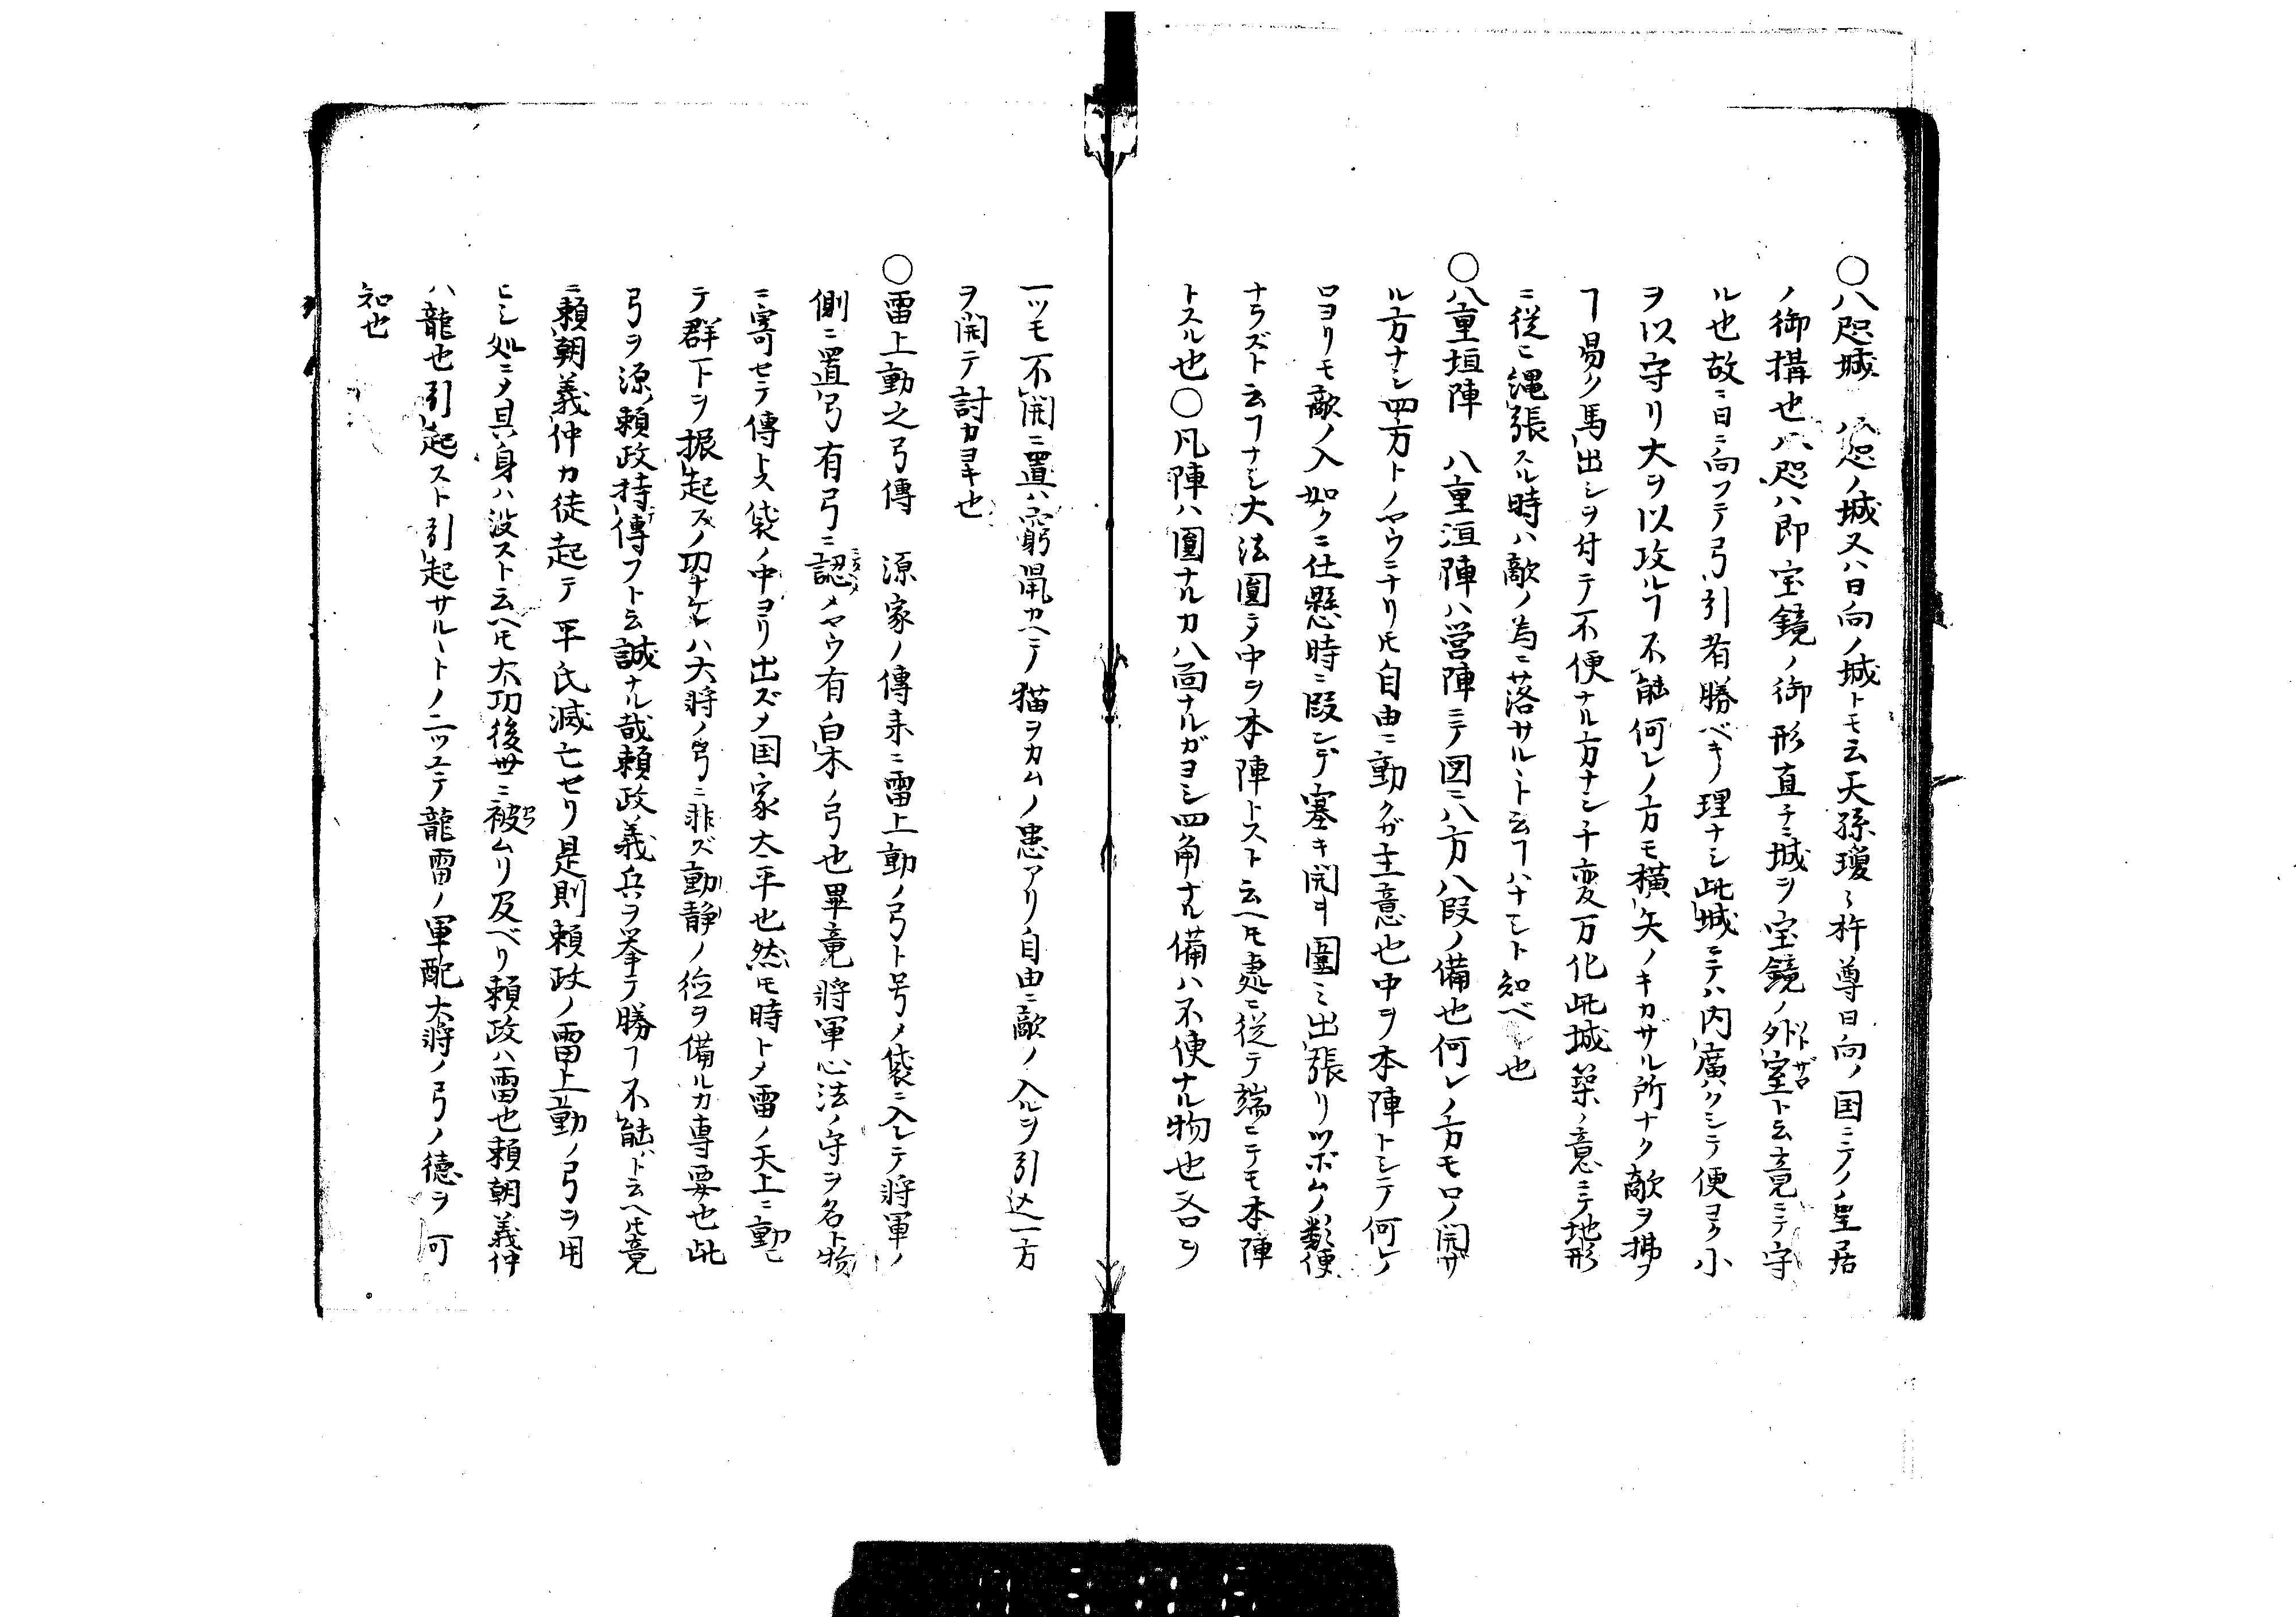 ○八咫城　八咫ノ城又ハ日向ノ城トモ云天孫瓊々杵尊日向ノ国ニテノ皇居
ノ御構也八咫ハ即宝鏡ノ御形直チニ城ヲ宝鏡ノ外室ト云意ニテ守
ル也故ニ日ニ向フテ弓引者勝ベキノ理ナシ此城ニテハ内広クシテ便ヨク小
ヲ以守リ大ヲ以攻ルヿ不能何レノ方モ横矢ノキカザル所ナク敵ヲ拂フ
ヿ易ク馬出シヲ付テ不便ナル方ナシ千変万化此城築ノ意ニテ地形
ニ従ヒ縄張スル時ハ敵ノ為ニ落サルヽト云フヿハナシト知ベシ也
○八重垣陣　八重垣陣ハ営陣ニテ図ニ八方八段ノ備也何レノ方モ口ノ開ザ
ル方ナシ四方トノヤウニナリ𪜈自由ニ動クガ主意也中ヲ本陣トシテ何レノ
口ヨリモ敵ノ入如クニ仕懸時ニ段シテ塞キ開キ圍ミ出張リツボムノ類便
ナラズト云フヿナシ大法圓ニテ中ヲ本陣トスト云ヘ𪜈處ニ従テ端ニテモ本陣
トスル也○凡陣ハ圓ナルカ八角ナルガヨシ四角ナル備ハ不便ナル物也各口ヲ
一ツモ不開ニ置ハ窮鼠カヘテ猫ヲカムノ患アリ自由ニ敵ノ入ルヲ引込一方
ヲ開テ討カヨキ也
○雷上動之弓傳　源家ノ傳来ニ雷上動ノ弓ト号メ袋ニ入レテ将軍ノ
側ニ置弓有弓ニ認メヤウ有白木ノ弓也畢竟将軍心法ノ守ヲ名ト物
ニ寄セテ傳トス袋ノ中ヨリ出ズメ国家大平也然𪜈時トメ雷ノ天上ニ動ヒ
テ群下ヲ振起スノ功ナケレハ大将ノ弓ニ非ズ動静ノ位ヲ備ルカ専要也此
弓ヲ源頼政持傳フト云誠ナル哉頼政義兵ヲ挙テ勝ヿ不能ト云ヘ𪜈竟
ニ頼朝義仲カ徒起テ平氏滅亡セリ是則頼政ノ雷上動ノ弓ヲ用
ヒシ処ニメ其身ハ没スト云ヘ𪜈大功後世ニ被ムリ及ベリ頼政ハ雷也頼朝義仲
ハ龍也引起スト引起サルヽトノ二ツニテ龍雷ノ軍配大将ノ弓ノ徳ヲ可
知也